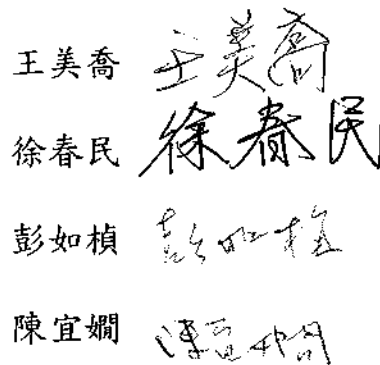 王美喬 王美喬
徐春民 徐春民
彭如楨 彭如楨
陳宜嫺 陳宜嫺